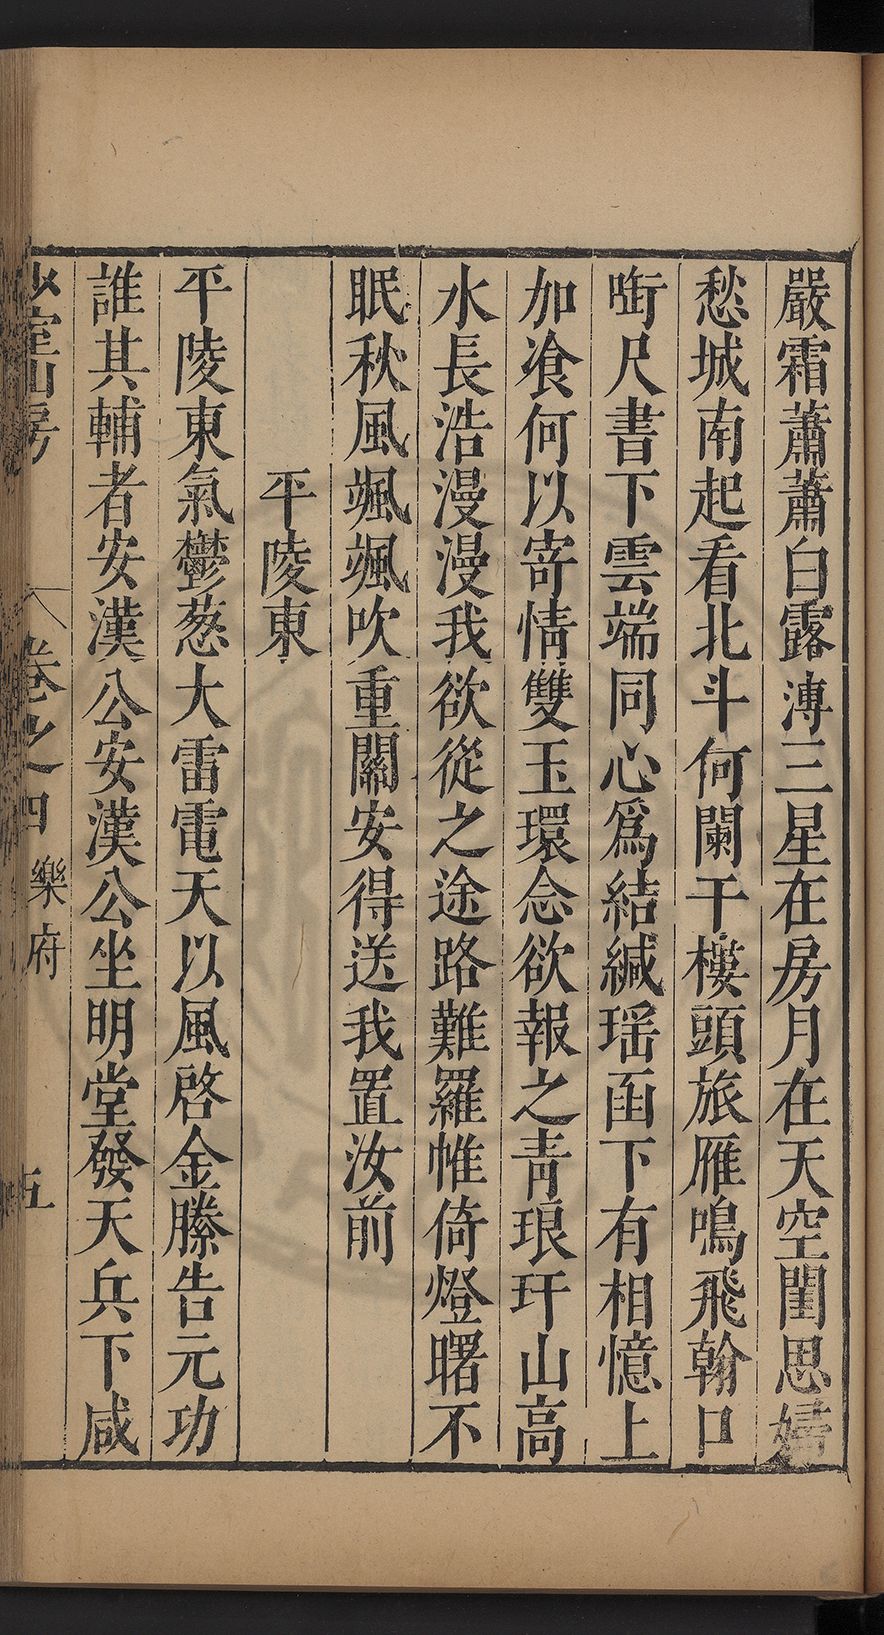 嚴霜蕭蕭白露漙三星在房月在天空閨思婦
愁城南起看北斗何闌干樓頭旅雁鳴飛翰口
㗸尺書下雲端同心爲結緘瑶函下有相憶上
加飡何以寄情雙玉環念欲報之青琅玕山高
水長浩漫漫我欲從之途路難羅帷倚燈曙不
眠秋風颯颯吹重關安得送我置汝前
平陵東
平陵東氣鬱葱大雷電天以風啓金縢告元功
誰其輔者安漢公安漢公坐明堂發天兵下咸
少室山房
卷之四
樂府
五